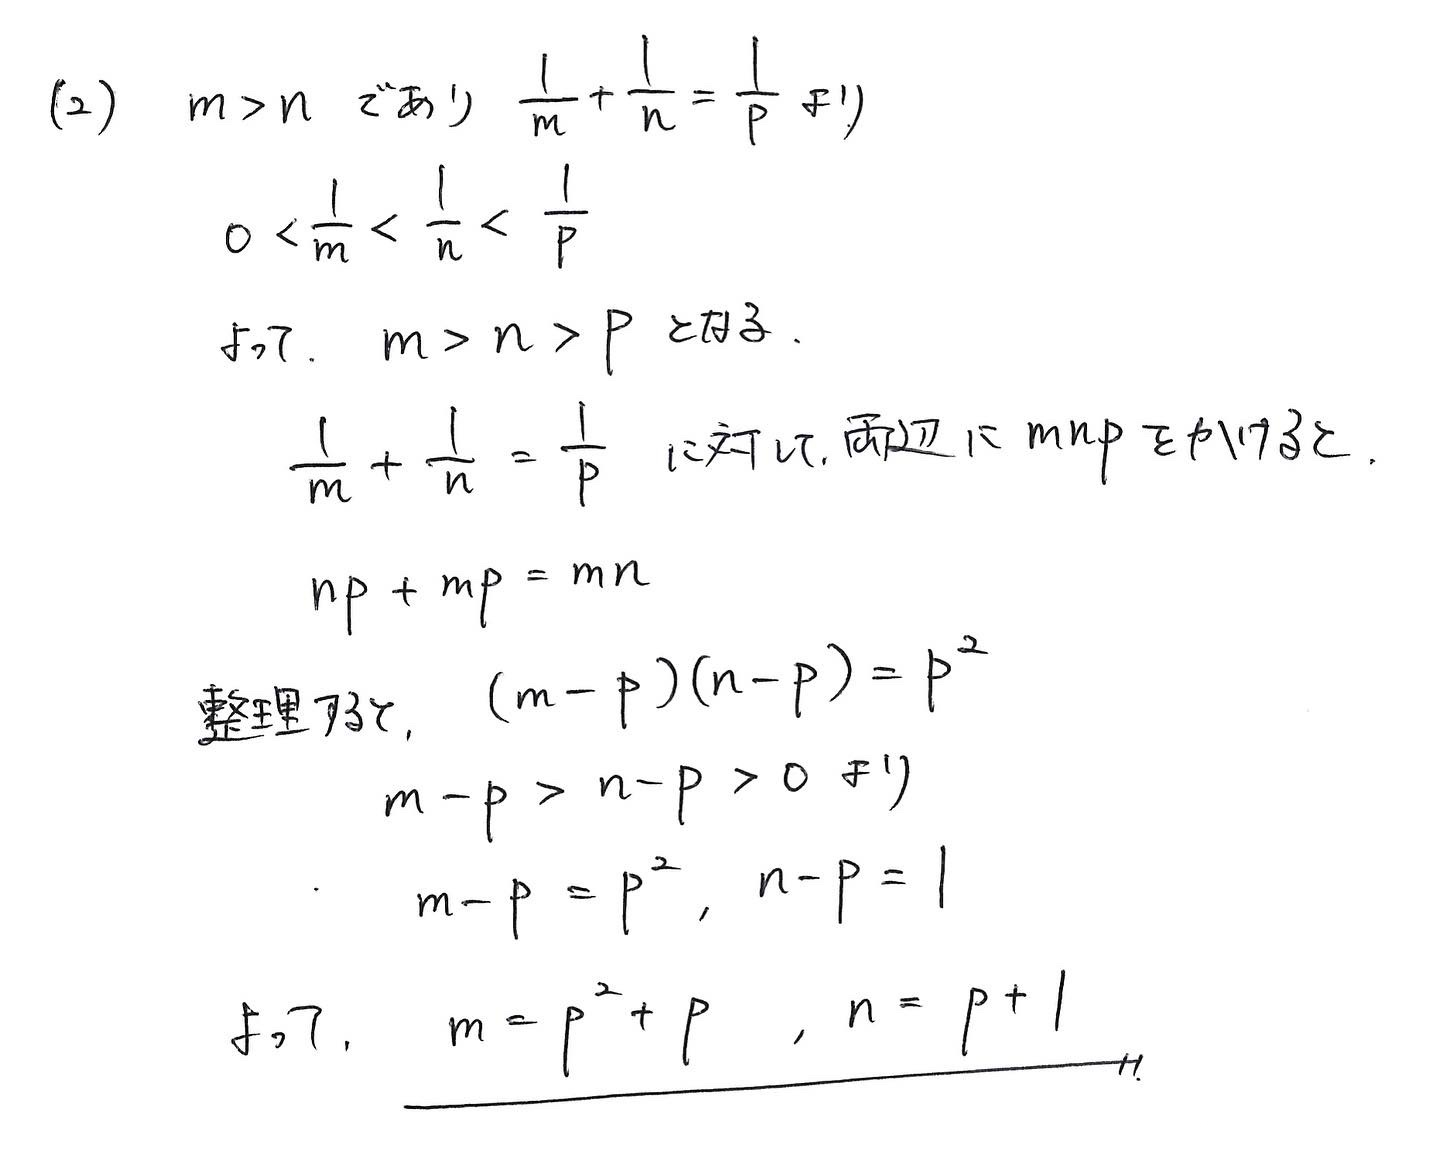 (2) m>n であり 1/m + 1/n = 1/p より
0 < 1/m < 1/n < 1/p
よって. m > n > p となる.
1/m + 1/n = 1/p に対して, 両辺に mnp をかけると.
np + mp = mn
整理すると, (m-p)(n-p) = p²
m-p > n-p > 0 より
m-p = p², n-p = 1
よって, m = p²+p , n = p+1